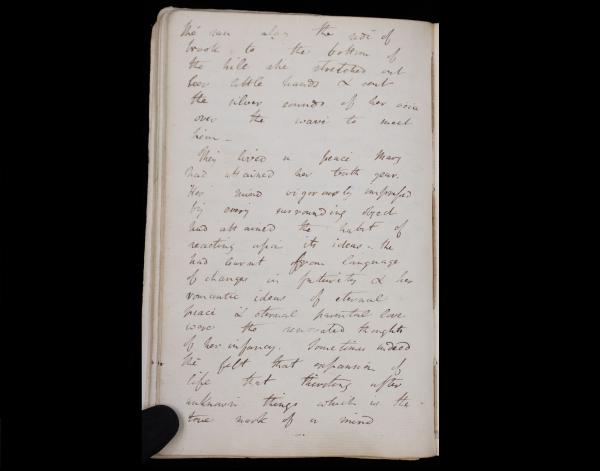 She ran along the side of
brook to the bottom of
the hill she stretched out
her little hands & sent
the silver sounds of her voice
over the wave to meet
him –
They lived in peace Mary
had attained her tenth year.
Her mind vigorously impressed
by every surrounding object
had attained the habit of
reacting upon its ideas – She
had learnt from language
of changes in futurity & her
romantic ideas of eternal
peace & eternal parental love
were the renovated thoughts
of her infancy. Sometimes indeed
She felt that expansion of
life that thirsting after
unknown things which is the
true mark of a mind